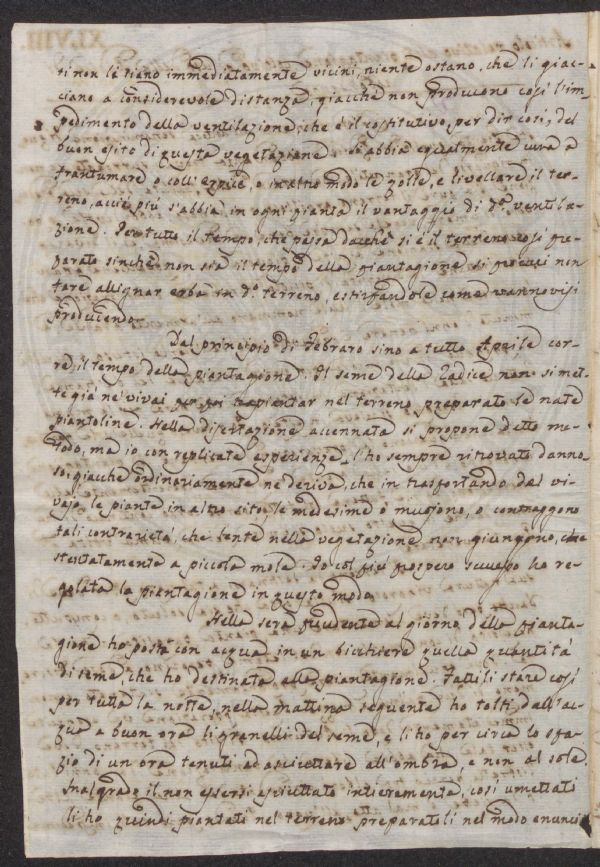 ti non le siano immediatamente vicini, niente ostano, che li giac-
ciano a considerevole distanza, giacchè non producono così l'im-
pedimento della ventilazione, che è il costitutivo, per dir così, del
buon esito di questa vegetazione. S'abbia egualmente cura a
frantumare o coll'erpice, o in altro modo le zolle, e livellare il ter-
reno, acciò più s'abbia in ogni pianta il vantaggio di d.ª ventila-
zione. Per tutto il tempo, che passa dacchè si è il terreno così pre-
parato sinchè non sia il tempo della piantagione si procuri non
fare allignar erba in d.º terreno, estirpandole come vannovisi
producendo.
Dal principio di Febraro sino a tutto Aprile cor-
re il tempo della piantagione. Il seme della Radice non si met-
te già ne' vivai per poi trapiantar nel terreno preparato le nate
piantoline. Nella disertazione accennata si propone detto me-
todo, ma io con replicate esperienze l'ho sempre ritrovato danno-
so; giacchè ordinariamente ne deriva, che in trasportando dal vi-
vajo le piante in altro sito, le medesime o muojono, o contraggono
tali contrarietà, che lente nella vegetazione non giungono, che
stentatamente a piccola mole. Io col più prospero successo ho re-
golata la piantagione in questo modo.
Nella sera precedente al giorno della pianta-
gione ho posta con acqua in un bicchiere quella quantità
di seme, che ho destinata alla piantagione. Fattili stare così
per tutta la notte, nella mattina seguente ho tolti dall'ac-
qua a buon ora li granelli del seme, e li ho per circa lo spa-
zio di un ora tenuti ad asciuttare all'ombra, e non al sole.
Malgrado il non essersi asciuttati intieramente, così umettati
li ho quindi piantati nel terreno preparatoli nel modo enunci